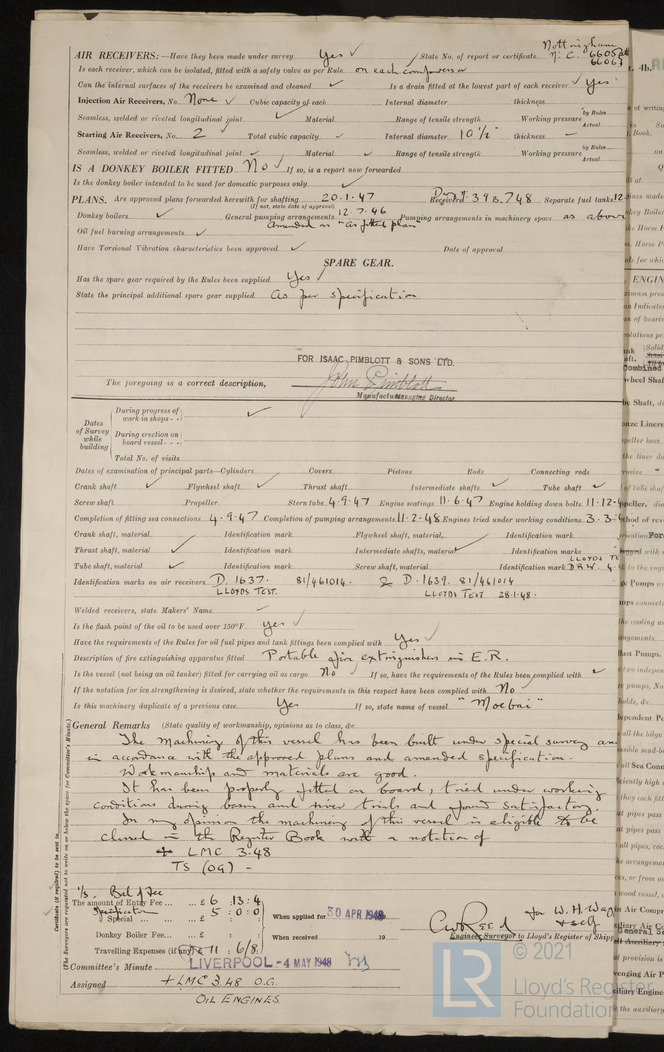 Nottingham
AIR RECEIVERS:—Have they been made under survey Yes ✓ State No. of report or certificate N. C. 66052
66063
Is each receiver, which can be isolated, fitted with a safety valve as per Rule on each compressor
Can the internal surfaces of the receivers be examined and cleaned ✓ Is a drain fitted at the lowest part of each receiver ✓ Yes
Injection Air Receivers, No. None ✓ Cubic capacity of each Internal diameter thickness
Seamless, welded or riveted longitudinal joint ✓ Material Range of tensile strength Working pressure by Rules Actual
Starting Air Receivers, No. 2 Total cubic capacity Internal diameter 10½" thickness —
Seamless, welded or riveted longitudinal joint ✓ Material ✓ Range of tensile strength Working pressure by Rules Actual
IS A DONKEY BOILER FITTED No ✓ If so, is a report now forwarded
Is the donkey boiler intended to be used for domestic purposes only
PLANS. Are approved plans forwarded herewith for shafting 20.1.47 Receivers 39B.748 Separate fuel tanks 12
(If not, state date of approval)
Donkey boilers ✓ General pumping arrangements 12.7.46 Pumping arrangements in machinery space as above
Amended as "As fitted plan"
Oil fuel burning arrangements ✓
Have Torsional Vibration characteristics been approved ✓ Date of approval
SPARE GEAR.
Has the spare gear required by the Rules been supplied Yes
State the principal additional spare gear supplied as per specification
FOR ISAAC PIMBLOTT & SONS LTD.
The foregoing is a correct description, John Pimblott
Manufacturer Managing Director
Dates of Survey while building
During progress of work in shops - - ✓
During erection on board vessel - - -
Total No. of visits
Dates of examination of principal parts—Cylinders Covers Pistons Rods Connecting rods
Crank shaft ✓ Flywheel shaft ✓ Thrust shaft Intermediate shafts ✓ Tube shaft ✓
Screw shaft Propeller Stern tube 4.9.47 Engine seatings 11.6.47 Engine holding down bolts 11.12.4
Completion of fitting sea connections 4.9.47 Completion of pumping arrangements 11.2.48 Engines tried under working conditions 3.3.4
Crank shaft, material Identification mark Flywheel shaft, material Identification mark
Thrust shaft, material ✓ Identification mark Intermediate shafts, material ✓ Identification marks
LLOYDS TE
Tube shaft, material ✓ Identification mark Screw shaft, material Identification mark D.R.W.
Identification marks on air receivers D. 1637. 81/461014 & D. 1639. 81/461014
LLOYDS TEST. LLOYDS TEST 28.1.48.
Welded receivers, state Makers' Name —
Is the flash point of the oil to be used over 150°F. Yes ✓
Have the requirements of the Rules for oil fuel pipes and tank fittings been complied with Yes ✓
Description of fire extinguishing apparatus fitted Portable fire extinguishers in E.R.
Is the vessel (not being an oil tanker) fitted for carrying oil as cargo No ✓ If so, have the requirements of the Rules been complied with ✓
If the notation for ice strengthening is desired, state whether the requirements in this respect have been complied with No ✓
Is this machinery duplicate of a previous case Yes If so, state name of vessel "Moebai"
General Remarks (State quality of workmanship, opinions as to class, &c.
The machinery of this vessel has been built under special survey an
in accordance with the approved plans and amended specification.
Workmanship and materials are good.
It has been properly fitted on board, tried under working
conditions during basin and river trials and found satisfactory.
In my opinion the machinery of this vessel is eligible to be
classed in the Register Book with a notation of
+ LMC 3.48
TS (OG) -
Certificate (if required) to be sent to
(The Surveyors are requested not to write on or below the space for Committee's Minute.)
The amount of Entry Fee ... £ 6 : 13 : 4
Specification
Special ... £ 5 : 0 : 0 When applied for 30 APR 1948
Donkey Boiler Fee... £ When received 19
Travelling Expenses (if any) £ 11 : 6/8
C W Reed for W. H. Wag & self
Engineer Surveyor to Lloyd's Register of Shipp
Committee's Minute LIVERPOOL - 4 MAY 1948
Assigned + LMC 3.48 O.G.
OIL ENGINES
© 2021
LR
Lloyd's Register
Foundation